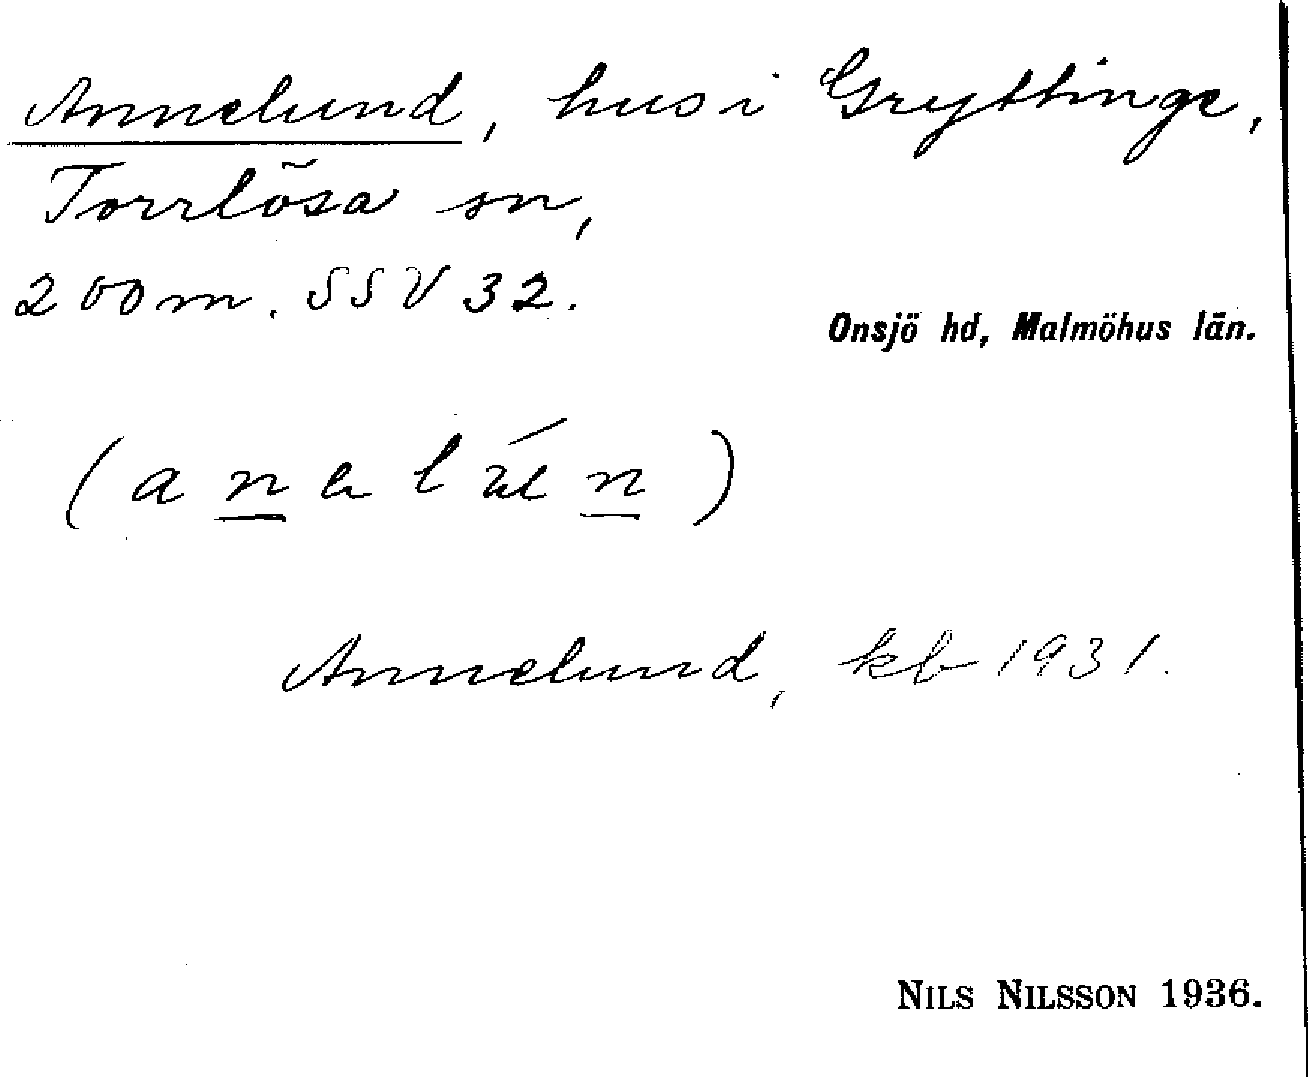 Annelund, hus i Gryttinge,
Torrlösa sn,
200 m. SSV 32.
Onsjö hd, Malmöhus län.
Annelund, kb 1931.
NILS NILSSON 1936.